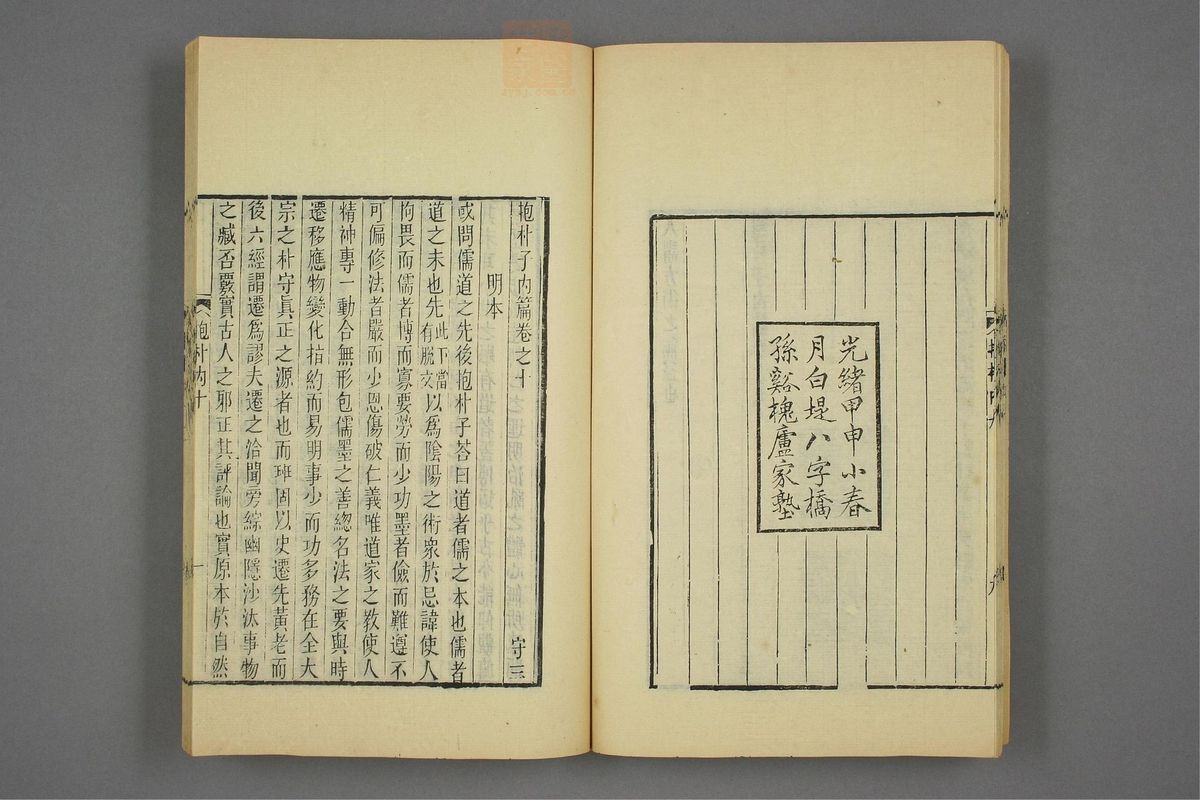 光緒甲申小春
月白堤八字橋
孫谿槐廬家塾
九
抱朴子内篇卷之十 守三
明本
或問儒道之先後抱朴子荅曰道者儒之本也儒者
道之末也先此下當有脫文以爲陰陽之術衆於忌諱使人
拘畏而儒者博而寡要勞而少功墨者儉而難遵不
可偏修法者嚴而少恩傷破仁義唯道家之教使人
精神專一動合無形包儒墨之善緫名法之要與時
遷移應物變化指約而易明事少而功多務在全大
宗之朴守眞正之源者也而班固以史遷先黃老而
後六經謂遷爲謬夫遷之洽聞旁綜幽隱沙汰事物
之臧否覈實古人之邪正其評論也實原本於自然
抱朴内十
一